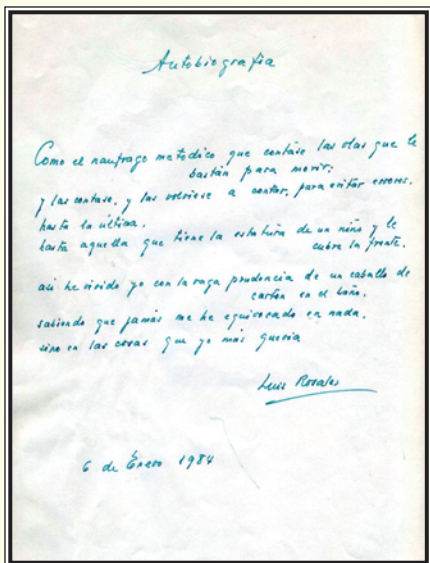 Autobiografía
Como el naufrago metodico que contase las olas que le
bastan para morir;
y las contase, y las volviese a contar, para evitar errores,
hasta la última,
hasta aquella que tiene la estatura de un niño y le
cubre la frente,
asi he vivido yo con la vaga prudencia de un caballo de
cartón en el baño,
sabiendo que jamás me he equivocado en nada,
sino en las cosas que yo más quería
Luis Rosales
6 de Enero 1984